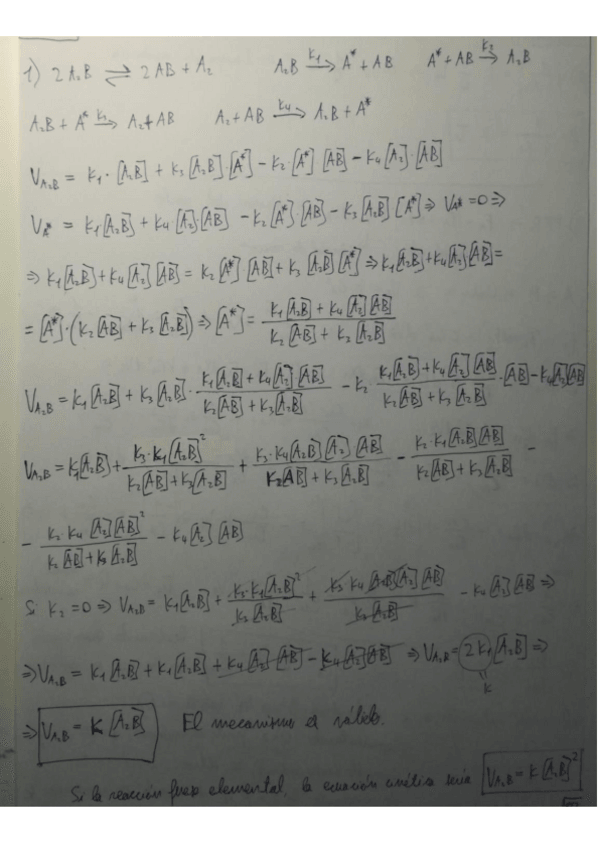 1) 2A₂B ⇌ 2AB + A₂   A₂B →(K₁) A* + AB   A* + AB →(K₂) A₂B
A₂B + A* →(K₃) A₂ + AB   A₂ + AB →(K₄) A₂B + A*
V_A₂B = K₁·[A₂B] + K₃[A₂B]·[A*] − K₂·[A*][AB] − K₄[A₂]·[AB]
V_A* = K₁[A₂B] + K₄[A₂][AB] − K₂[A*][AB] − K₃[A₂B][A*] ⇒ V_A* = 0 ⇒
⇒ K₁[A₂B] + K₄[A₂][AB] = K₂[A*][AB] + K₃[A₂B][A*] ⇒ K₁[A₂B] + K₄[A₂][AB] =
= [A*]·(K₂[AB] + K₃[A₂B]) ⇒ [A*] = (K₁[A₂B] + K₄[A₂][AB]) / (K₂[AB] + K₃[A₂B])
V_A₂B = K₁[A₂B] + K₃[A₂B]·(K₁[A₂B] + K₄[A₂][AB]) / (K₂[AB] + K₃[A₂B]) − K₂·(K₁[A₂B] + K₄[A₂][AB]) / (K₂[AB] + K₃[A₂B])·[AB] − K₄[A₂][AB]
V_A₂B = K₁[A₂B] + K₃·K₁[A₂B]² / (K₂[AB] + K₃[A₂B]) + K₃·K₄[A₂B][A₂][AB] / (K₂[AB] + K₃[A₂B]) − K₂·K₁[A₂B][AB] / (K₂[AB] + K₃[A₂B]) −
− K₂·K₄[A₂][AB]² / (K₂[AB] + K₃[A₂B]) − K₄[A₂][AB]
Si K₂ = 0 ⇒ V_A₂B = K₁[A₂B] + K₃·K₁[A₂B]² / K₃[A₂B] + K₃·K₄[A₂B][A₂][AB] / K₃[A₂B] − K₄[A₂][AB] ⇒
⇒ V_A₂B = K₁[A₂B] + K₁[A₂B] + K₄[A₂][AB] − K₄[A₂][AB] ⇒ V_A₂B = 2K₁[A₂B] ⇒
K
⇒ V_A₂B = K[A₂B]   El mecanismo es válido.
Si la reacción fuese elemental, la ecuación cinética sería V_A₂B = K[A₂B]²